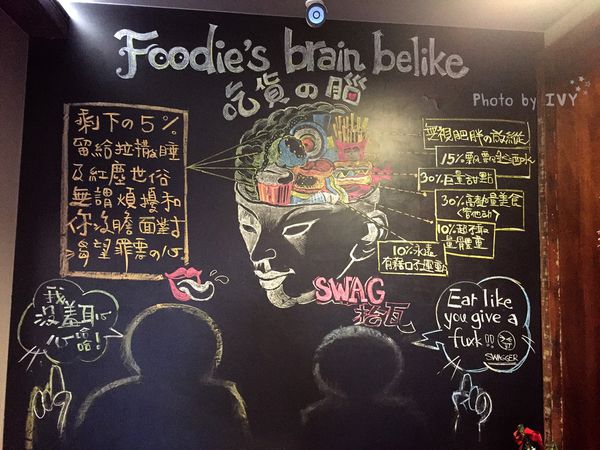 Foodie's brain belike
吃貨の腦
Photo by IVY
剩下の5%
留給拉撒睡
及紅塵世俗
無謂煩擾和
你沒膽面對
渴望罪惡の心
無視肥胖の放縱
15%
30%巨量甜點
30%高熱量美食
10%
量體重
10%永遠
有藉口不運動
SWAG
我
沒羞恥
心 哈哈!
Eat like
you give a
fuxk!!
SWAGGER